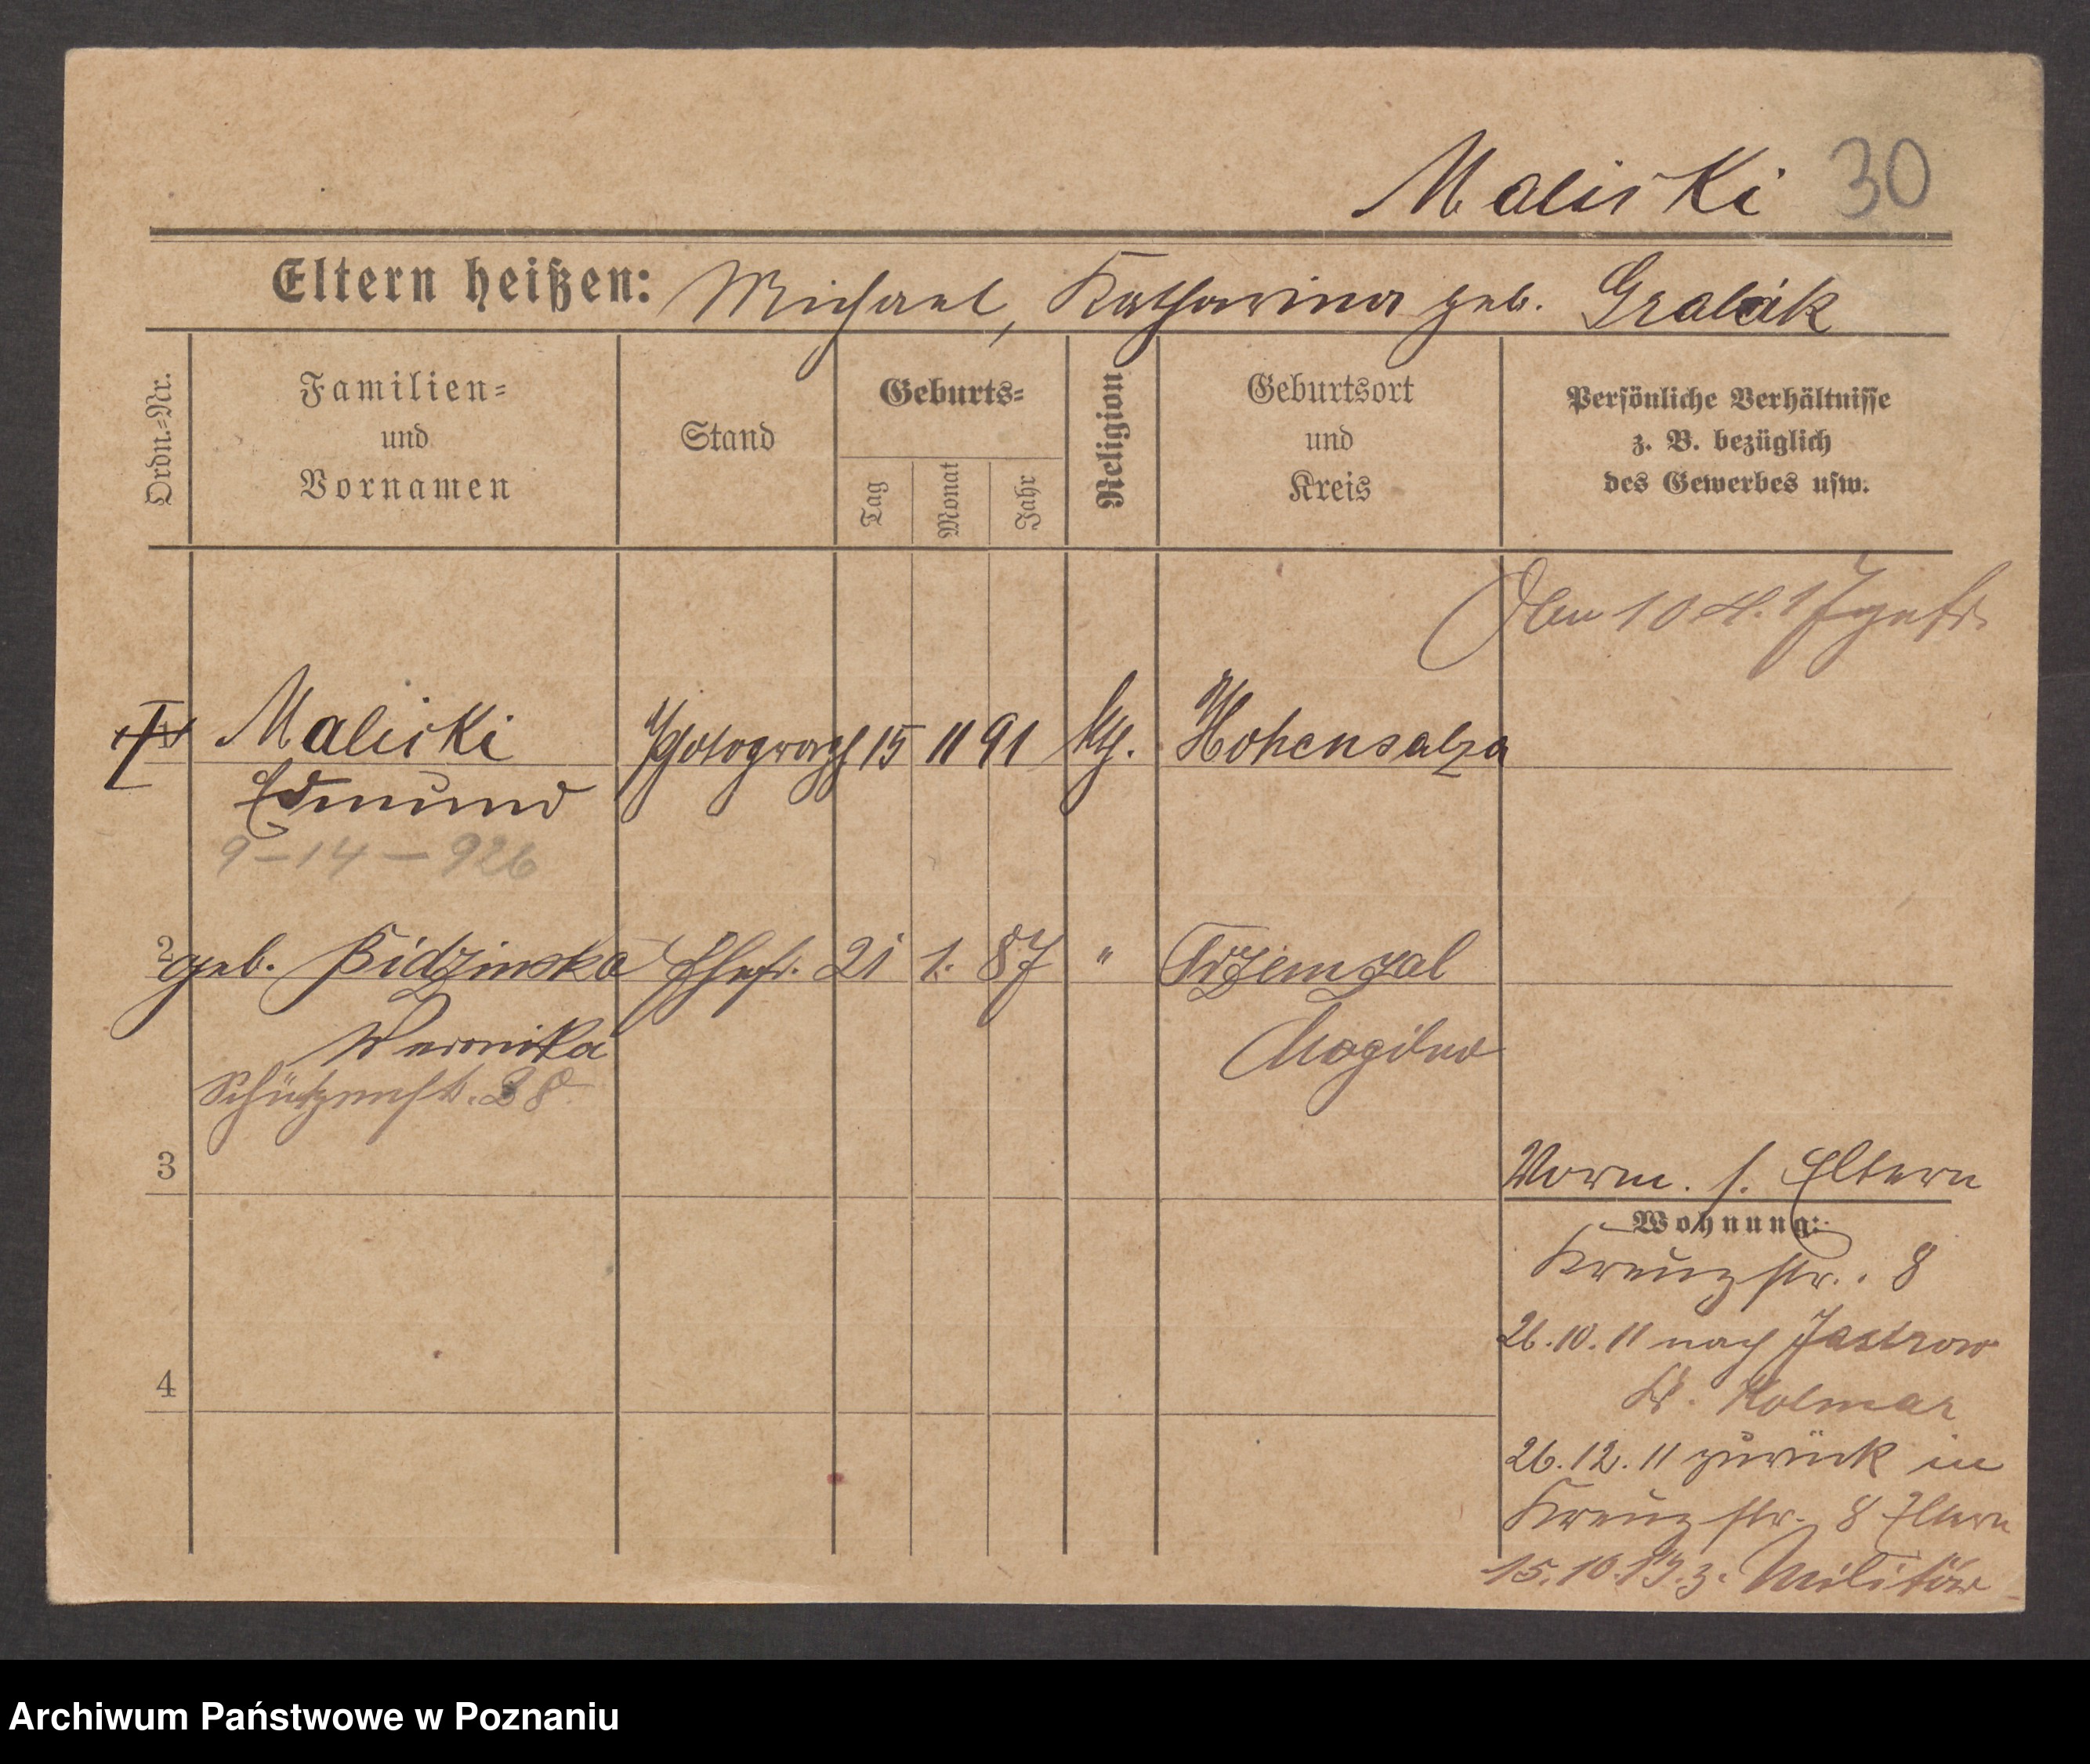 Maliski 30
Eltern heißen: Michael, Katharina geb. Gralak
Ordn.-Nr.
Familien-
und
Vornamen
Stand
Geburts-
Tag
Monat
Jahr
Religion
Geburtsort
und
Kreis
Persönliche Verhältnisse
z. B. bezüglich
des Gewerbes usw.
Den 10 4. 17
I Maliski Photograph 15 11 91 kth. Hohensalza
Edmund
9-14-926
2 geb. Bidzinska Ehefr. 21 1. 87 " Trzemzal
Weronika Mogilno
Schützenstr. 38
3
Vorm. s. Eltern
Wohnung:
Kreuzstr. 8
26.10.11 nach Jastrow
4
Kr. Kolmar
26.12.11 zurück in
Kreuzstr. 8 Eltern
15.10.13 z. Militär
Archiwum Państwowe w Poznaniu